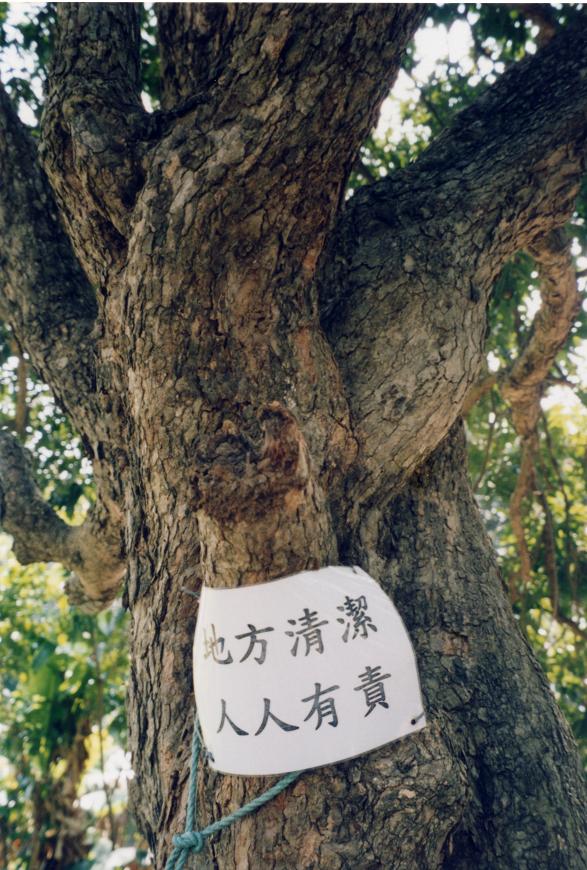 地方清潔
人人有責